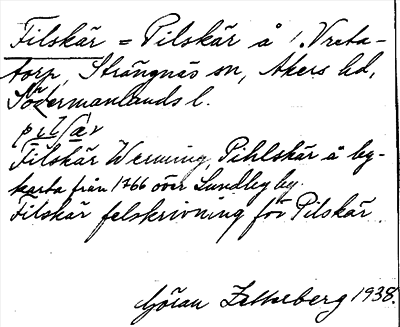 Filskär = Pilskär å 1. Vreta-
torp, Strängnäs sn, Åkers hd,
Södermanlands l.
pilʃær
Filskär Werming, Pihlskär å by-
karta från 1766 över Lundby by.
Filskär felskrivning för Pilskär.
Göran Zetterberg 1938.